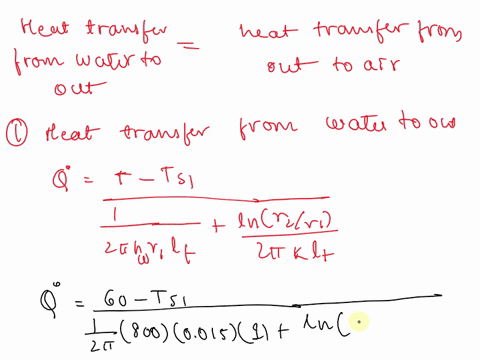 Heat transfer from water to out = heat transfer from out to air
① Heat transfer from water to ou
Q° = T - Ts1
1 / 2π hω r1 lt + ln(r2/r1) / 2π K lt
Q° = 60 - Ts1
1 / 2π (800)(0.015)(1) + ln(